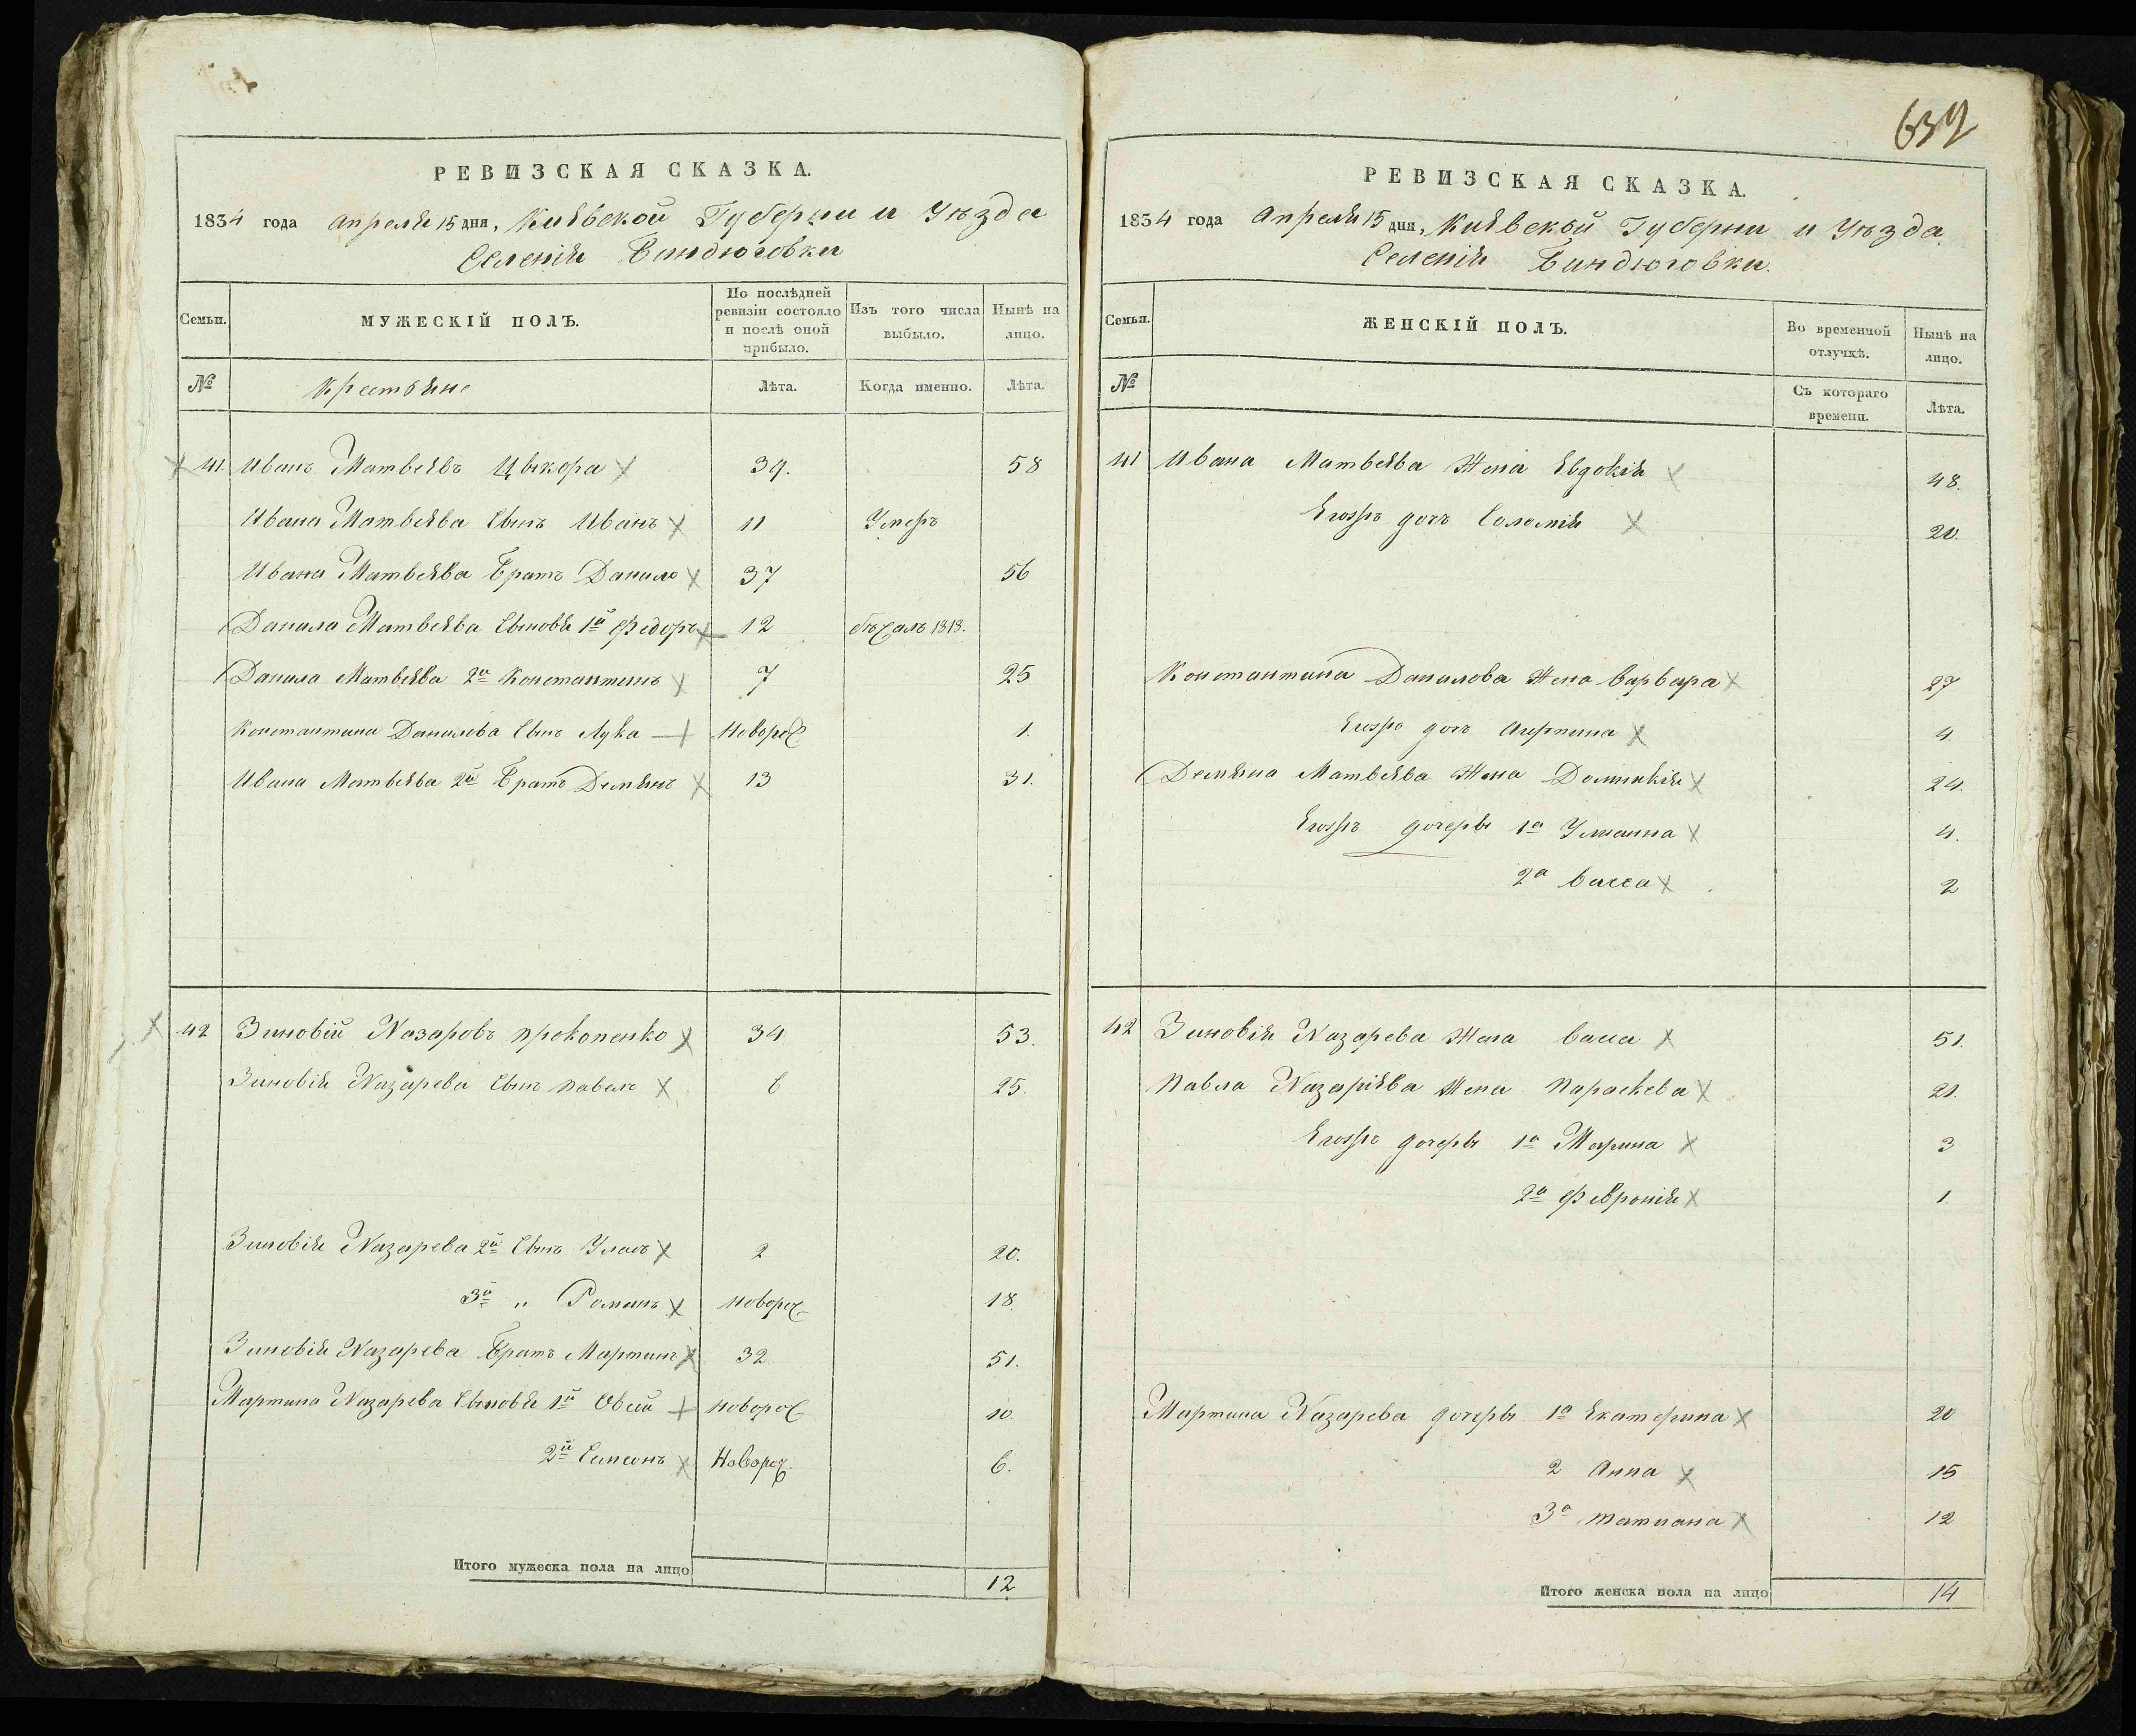 РЕВИЗСКАЯ СКАЗКА.
1834 года Апреля 15 дня, Кіявской Губерни и Уѣзда
Селенія Биндюговки
Семьи.
МУЖЕСКІЙ ПОЛЪ.
По послѣдней ревизіи состояло и послѣ оной прибыло.
Изъ того числа выбыло.
Нынѣ на лицо.
№
Крестьяне
Лѣта.
Когда именно.
Лѣта.
41 Иванъ Матвеявъ Цыкора 39. 58
Ивана Матвеява Сынъ Иванъ 11 Умеръ
Ивана Матвеява Братъ Данило 37 56
Данила Матвеява Сыновя 1й Федоръ 12 бѣжалъ 1818.
Данила Матвеява 2й Константинъ 7 25
Константина Данилова Сынъ Лука Новорож 1.
Ивана Матвеява 2й Братъ Демянъ 13 31.
42 Зиновій Назаровъ Прокопенко 34 53.
Зиновія Назарева Сынъ Павелъ 6 25.
Зиновія Назарева 2й Сынъ Уласъ 2 20.
3й „ Романъ Новорож 18.
Зиновія Назарева Братъ Мартинъ 32 51.
Мартина Назарева Сыновя 1й Новорож 10.
2й Симеонъ Новорож. 6.
Итого мужеска пола на лицо 12
632
РЕВИЗСКАЯ СКАЗКА.
1834 года Апреля 15 дня, Кіявской Губерни и Уѣзда
Селенія Биндюговки.
Семьи.
ЖЕНСКІЙ ПОЛЪ.
Во временной отлучкѣ.
Нынѣ на лицо.
№
Съ котораго времени.
Лѣта.
41 Ивана Матвеява Жена Явдокія 48.
дочь Соломія 20.
Константина Данилова Жена Варвара 27
дочь 4.
Демяна Матвеява Жена Доминикія 24.
дочеры 1а Улианна 4.
2а Васса 2
42 Зиновія Назарева Жена Васса 51.
Павла Назаріява Жена Параскева 21.
дочеры 1а Марина 3
2а Февронія 1.
Мартина Назарева дочеры 1а Екатерина 20
2 Анна 15
3а Татиана 12
Итого женска пола на лицо 14